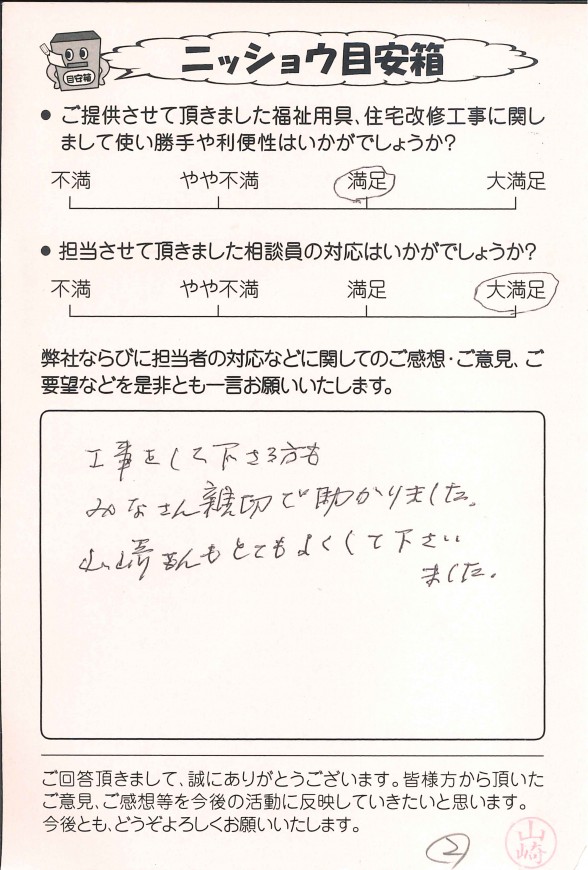 目安箱
ニッショウ目安箱
● ご提供させて頂きました福祉用具、住宅改修工事に関し
まして使い勝手や利便性はいかがでしょうか?
不満 やや不満 満足 大満足
● 担当させて頂きました相談員の対応はいかがでしょうか?
不満 やや不満 満足 大満足
弊社ならびに担当者の対応などに関してのご感想・ご意見、ご
要望などを是非とも一言お願いいたします。
工事をして下さる方も
みなさん親切で助かりました。
山崎さんもとてもよくして下さい
ました。
ご回答頂きまして、誠にありがとうございます。皆様方から頂いた
ご意見、ご感想等を今後の活動に反映していきたいと思います。
今後とも、どうぞよろしくお願いいたします。
②
山崎